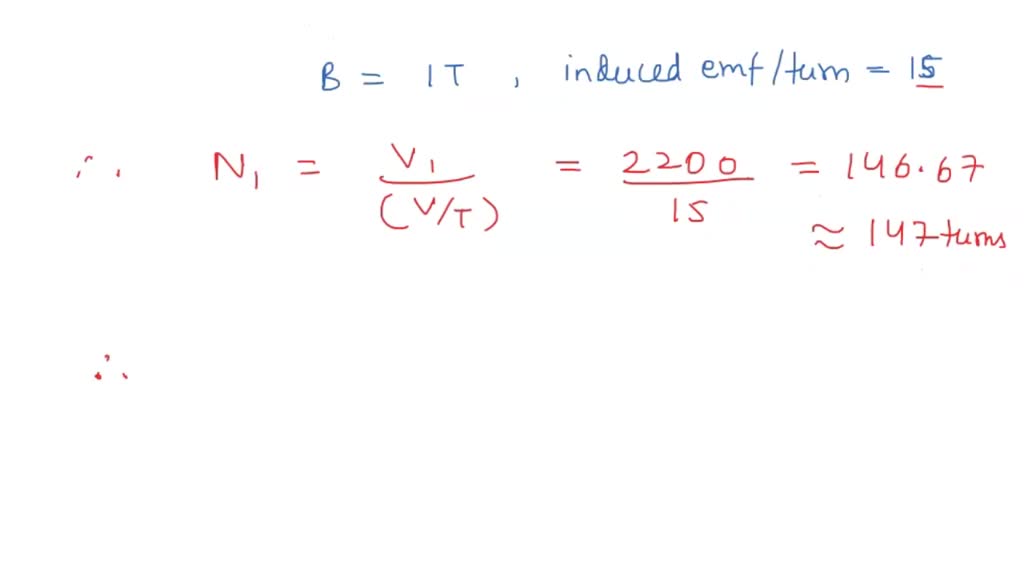 B = 1T , induced emf/turn = 15
∴ N₁ = V₁/(V/T) = 2200/15 = 146.67
≈ 147 turns
∴